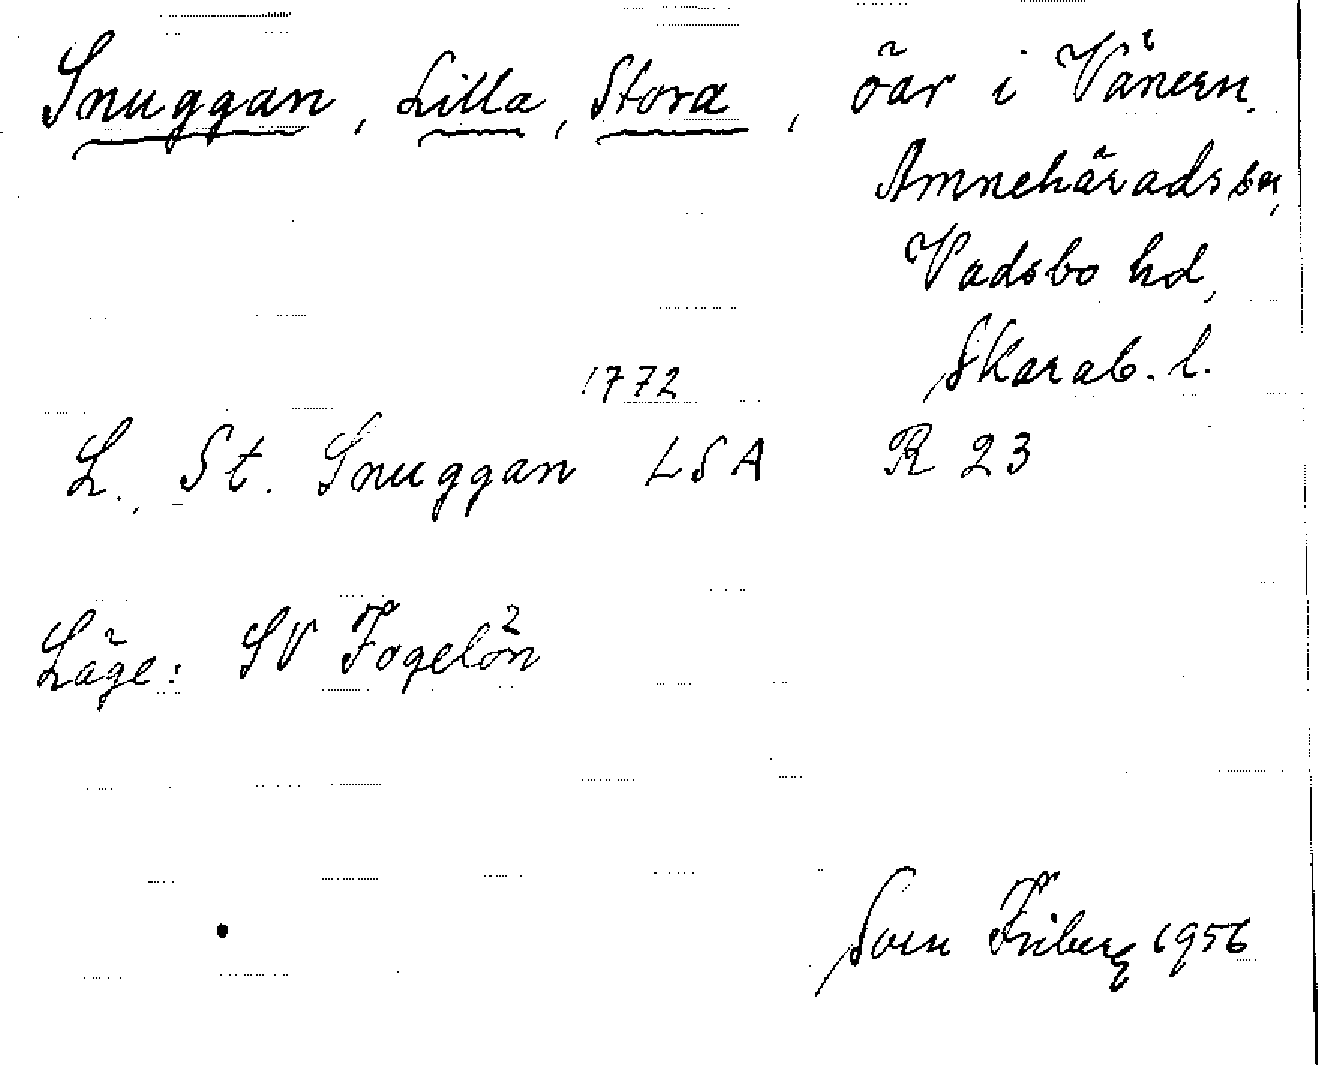 Snuggan, Lilla, Stora, öar i Vänern.
Amnehärads sn,
Vadsbo hd,
Skarab. l.
1772
L., St. Snuggan LSA R 23
Läge: SV Fogelön
Sven Friberg 1956